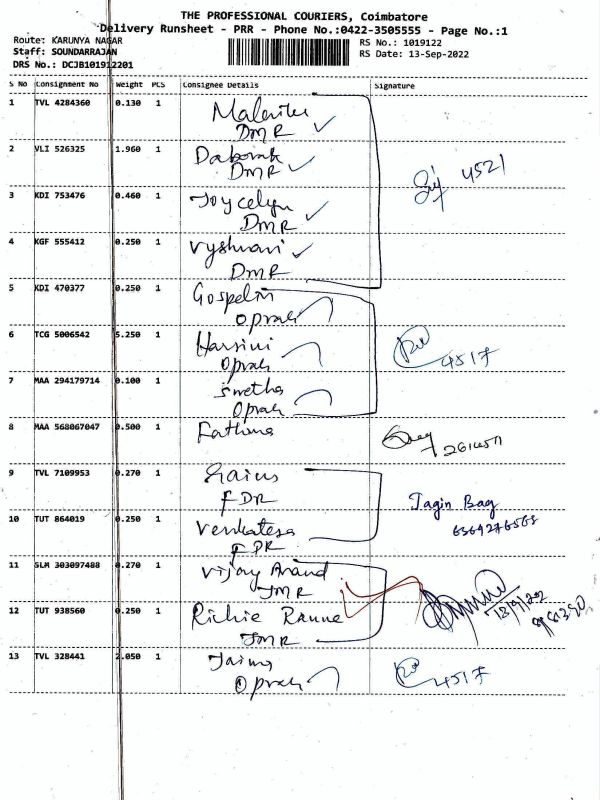 THE PROFESSIONAL COURIERS, Coimbatore
Delivery Runsheet - PRR - Phone No.:0422-3505555 - Page No.:1
Route: KARUNYA NAGAR
RS No.: 1019122
Staff: SOUNDARRAJAN
RS Date: 13-Sep-2022
DRS No.: DCJB101912201
S No Consignment No Weight PCS Consignee Details Signature
1 TVL 4284360 0.130 1
DMR
2 VLI 526325 1.960 1 Daborah
DMR
4521
3 KDI 753476 0.460 1 Joycelyn
DMR
4 KGF 555412 0.250 1 Vyshnavi
DMR
5 KDI 470377 0.250 1 Gospelin
6 TCG 5006542 5.250 1 Harsini
4517
7 MAA 294179714 0.100 1 Swetha
8 MAA 568067047 0.500 1 Fathima
9 TVL 7109953 0.270 1
FDR
Jagin Bag
10 TUT 864019 0.250 1 Venkatesa
FDR
11 SLM 303097488 0.270 1 Vijay Anand
JMR
12 TUT 938560 0.250 1 Richie
JMR
13 TVL 328441 2.050 1
4517